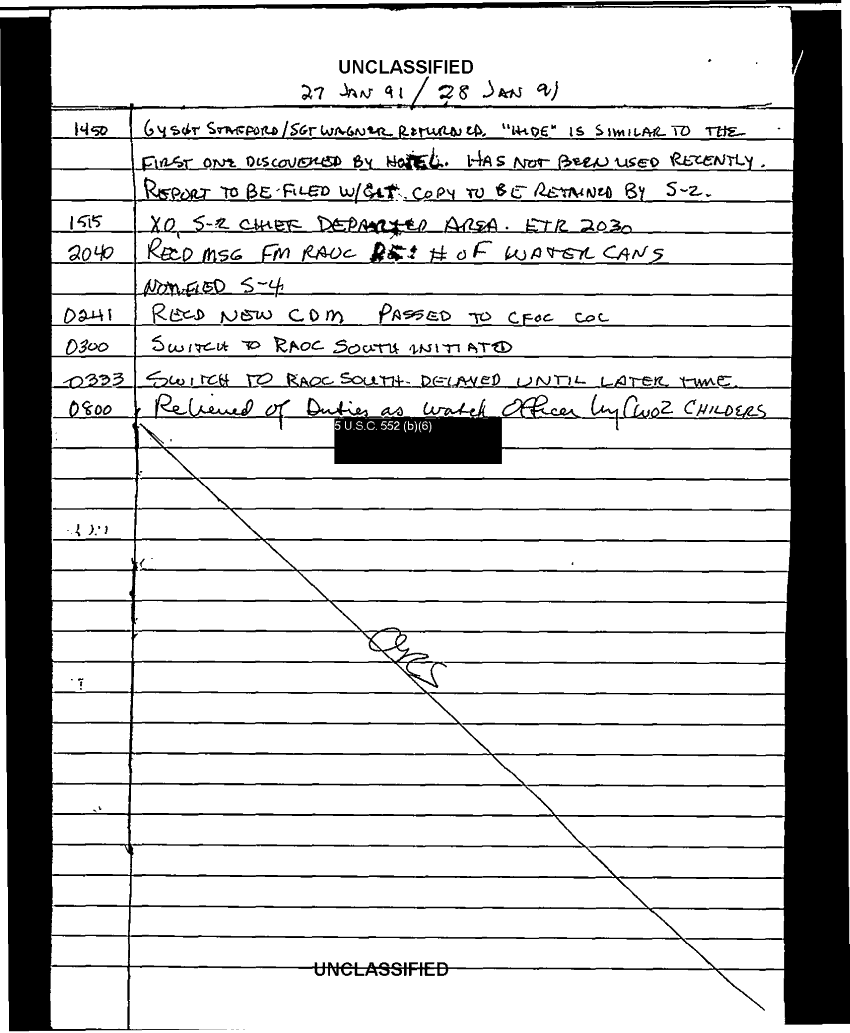 UNCLASSIFIED
27 JAN 91 / 28 JAN 91
1450 GYSGT STAFFORD/SGT WAGNER RETURNED. "HIDE" IS SIMILAR TO THE
FIRST ONE DISCOVERED BY HOTEL. HAS NOT BEEN USED RECENTLY.
REPORT TO BE FILED W/ COPY TO BE RETAINED BY S-2.
1515 XO, S-2 CHIEF DEPARTED AREA. ETR 2030
2040 RECD MSG FM RAOC RE: # OF WATER CANS
NOTIFIED S-4
0241 RECD NEW CDM PASSED TO CFOC COC
0300 SWITCH TO RAOC SOUTH INITIATED
0333 SWITCH TO RAOC SOUTH DELAYED UNTIL LATER TIME.
0800 Relieved of Duties as Watch Officer by CWO2 CHILDERS
5 U.S.C. 552 (b)(6)
UNCLASSIFIED